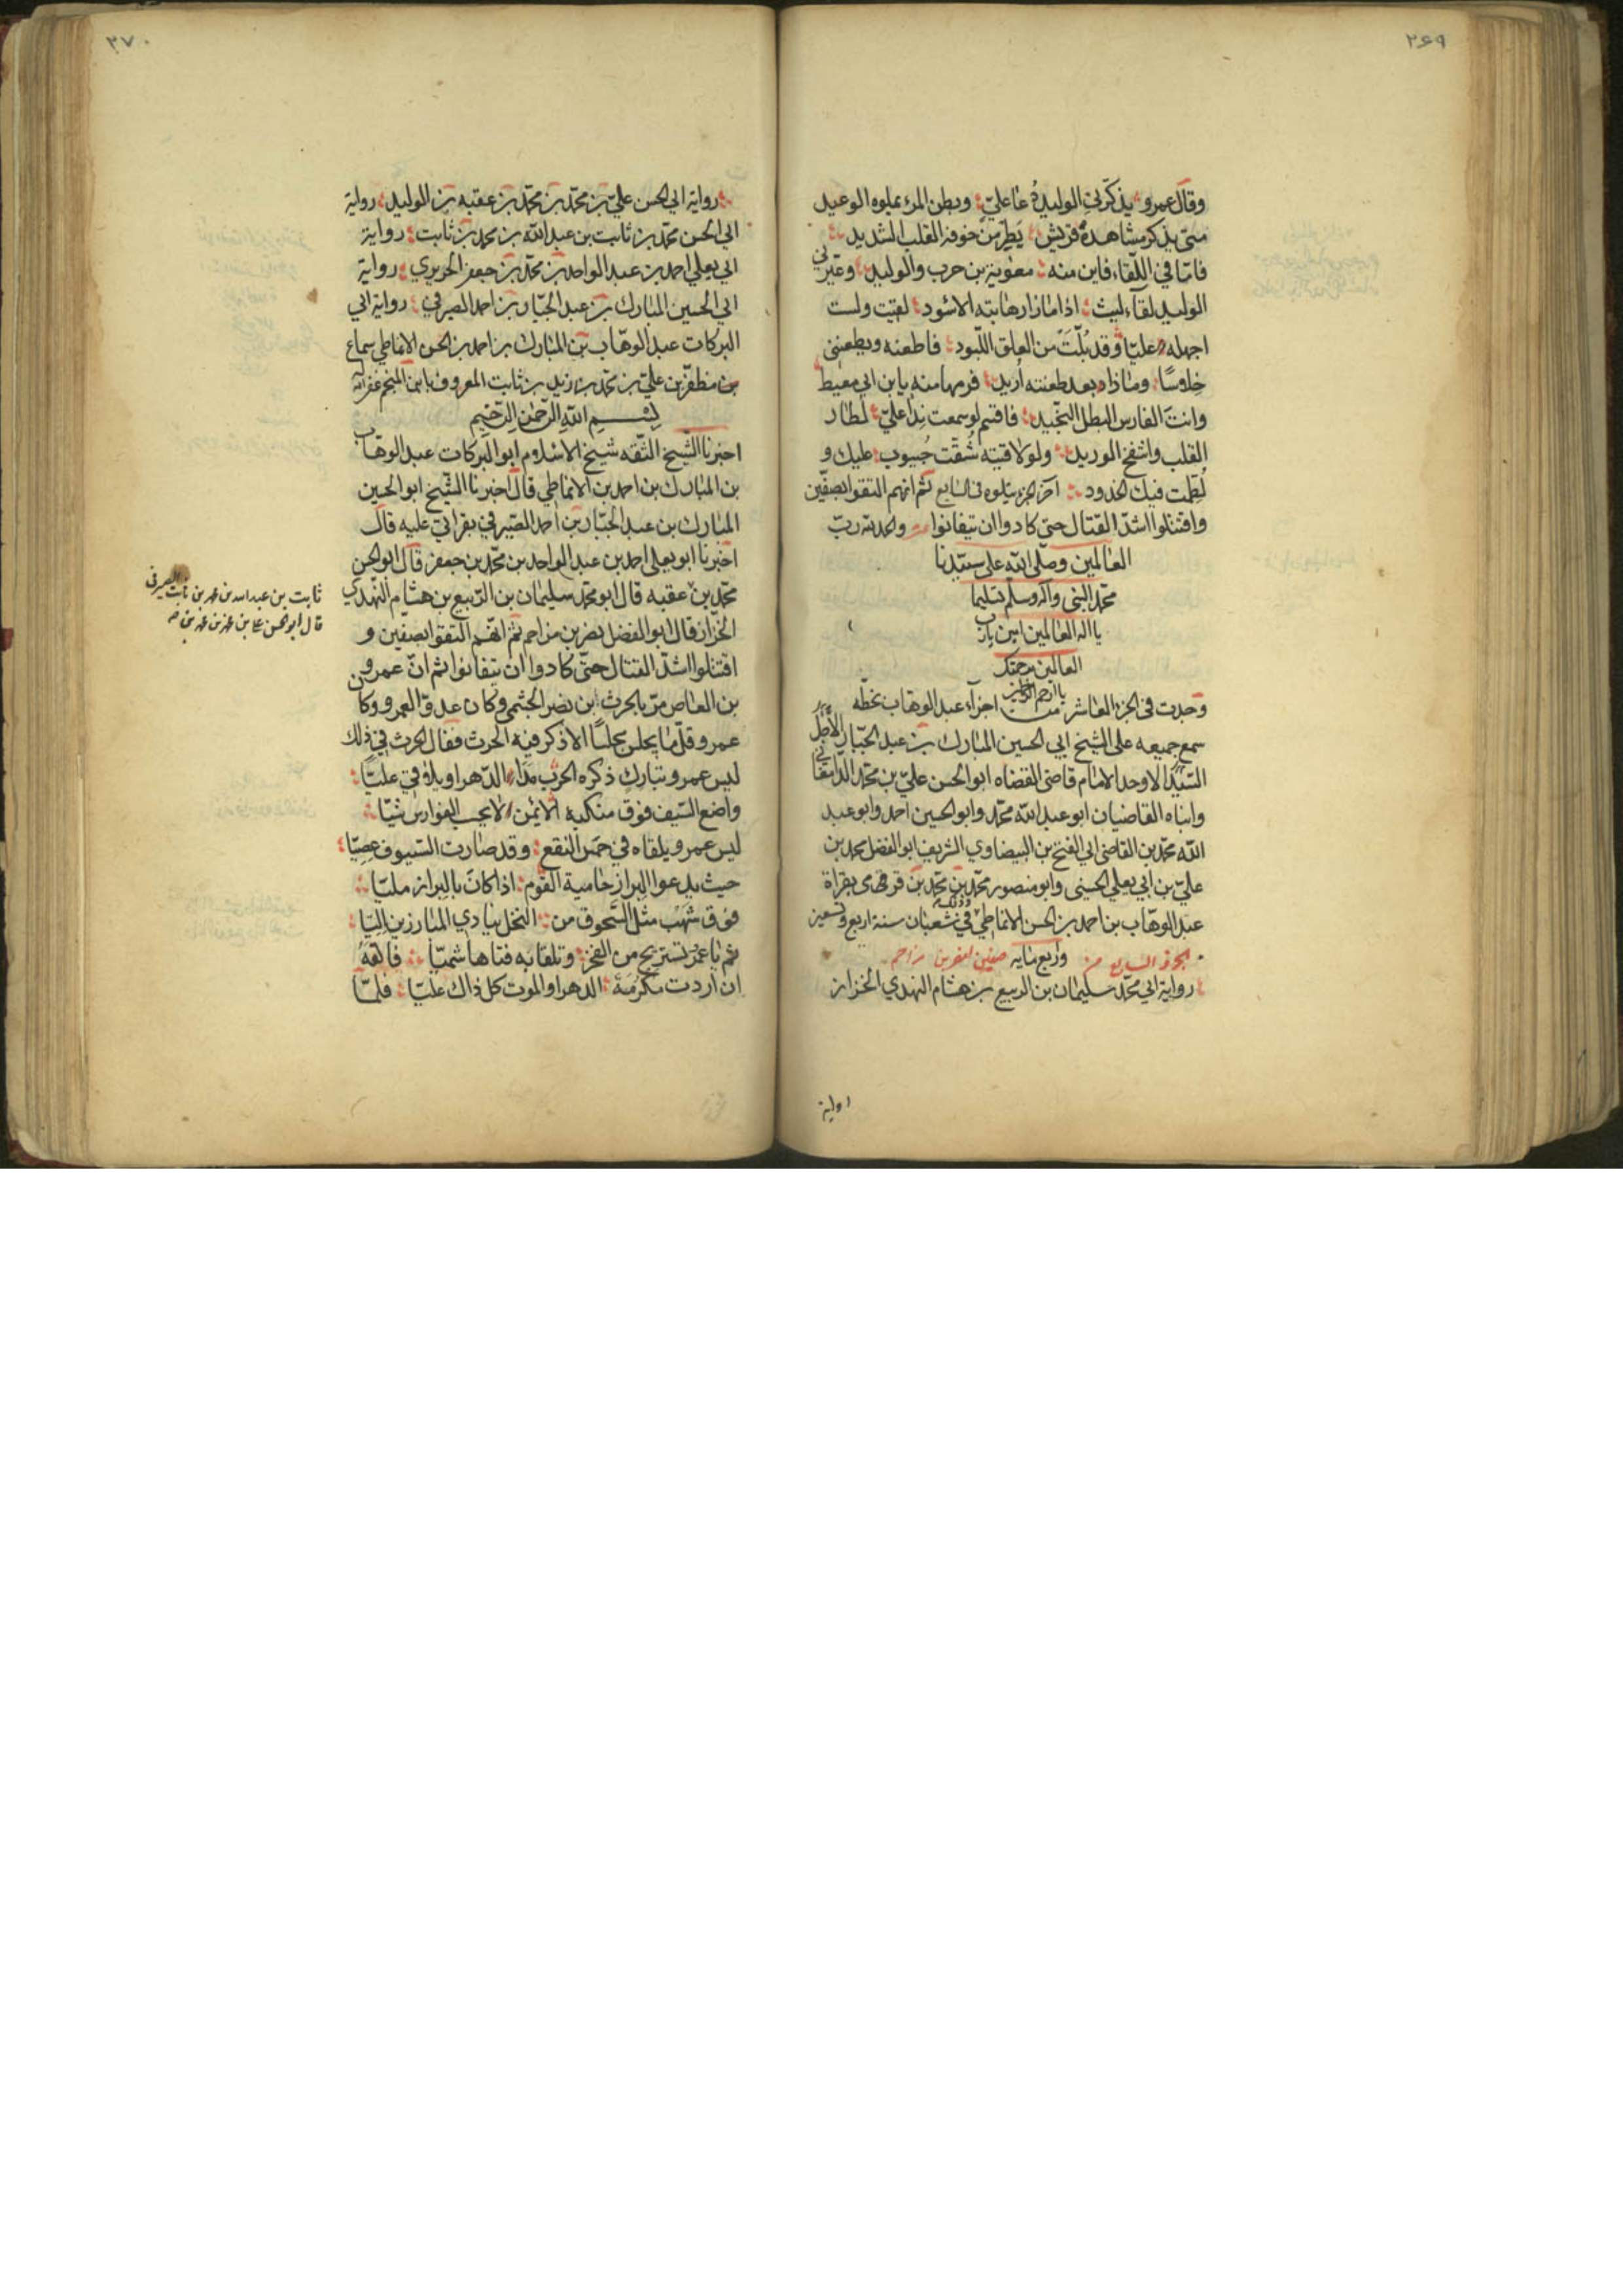 ٢٦٩
وقال عمرو يذكّرني الوليد دُعا عليّ وبطن المرء يملوه الوعيد
متى يذكر مشاهده قريش يَطِر من خوفه القلب الشديد
فامّا في اللّقاء فاين منه معوية بن حرب والوليد وعيّرني
الوليد لقاء ليث اذا ما زار هابته الاسُود لقيت ولست
اجهله عليّا وقد بُلّت من العلق اللّبود فاطعنه ويطعنني
خِلاسًا وماذا بعد طعنته اُريد فرمها منه يا بن ابي معيط
وانت الفارس البطل النجيد فاقسم لو سمعت نِدا عليّ لطار
القلب وانتفخ الوريد ولو لاقيته شُقّت جُيوب عليك و
لُطِمت فيك الخدود آخر الجزء يتلوه في السابع ثم انهم التقوا بصفّين
واقتتلوا اشدّ القتال حتى كادوا ان يتفانوا والحمد لله ربّ
العالمين وصلّى الله على سيّدنا
محمّد النبي وآله وسلّم تسليما
يا اله العالمين امين يا رب
العالمين برحمتك
يا ارحم الراحمين
وجدت في الجزء العاشر من اجزآء عبد الوهاب بخطّه
سمع جميعه على الشيخ ابي الحسين المبارك بن عبد الجبّار الأجلّ
السّيّد الاوحد الامام قاضي القضاه ابو الحسن عليّ بن محمّد الدّامغاني
وابناه القاضيان ابو عبد الله محمّد وابو الحسين احمد وابو عبد
الله محمّد بن القاضي ابي الفتح بن البيضاوي الشريف ابو الفضل محمد بن
عليّ بن ابي يعلي الحسيني وابو منصور محمّد بن محمّد بن قرمي بقراة
عبد الوهّاب بن احمد بن الحسن الانماطي وذلك في شعبان سنة اربع وتسعين
واربع مايه
الجزء السابع من صفين لنصر بن مزاحم
رواية ابي محمّد سليمان بن الربيع بن هشام النهدي الخزاز
رواية
٣٧٠
رواية ابي الحسن عليّ بن محمّد بن محمّد بن عقبه بن الوليد رواية
ابي الحسن محمّد بن ثابت بن عبد الله بن محمد بن ثابت رواية
ابي يعلي احمد بن عبد الواحد بن محمّد بن جعفر الحريري رواية
ابي الحسين المبارك بن عبد الجبّار بن احمد الصيرفي رواية ابي
البركات عبد الوهّاب بن المبارك بن احمد بن الحسن الانماطي سماع
بن مظفر بن عليّ بن محمّد بن زيد بن ثابت المعروف بابن المنجم غفر الله
بسم الله الرّحمٰن الرّحيم
اخبرنا الشّيخ الثّقه شيخ الاسلام ابو البركات عبد الوهّاب
بن المبارك بن احمد بن الانماطي قال اخبرنا الشّيخ ابو الحسين
المبارك بن عبد الجبّار بن احمد الصّيرفي بقراتي عليه قال
اخبرنا ابو يعلي احمد بن عبد الواحد بن محمّد بن جعفر قال ابو الحسن
محمّد بن عقبه قال ابو محمّد سليمان بن الرّبيع بن هشام النّهدي
ثابت بن عبد الله بن محمد بن ثابت الصيرفي
قال ابو الحسن علي بن محمد بن محمد بن صح
الخزّاز قال ابو الفضل نصر بن مزاحم ثمّ انّهم التقوا بصفين و
اقتتلوا اشدّ القتال حتّى كادوا ان يتفانوا ثم انّ عمرو
بن العاص مرّ بالحرث ابن نصر الجشمي وكان عدوّا لعمرو وكان
عمرو قلّ ما يجلس مجلسًا الا ذكر فيه الحرث فقال الحرث في ذلك
ليس عمرو بتارك ذكره الحرب مدا الدّهر او يلاقي عليّا
واضع السّيف فوق منكبه الايمن لا يحسب الفوارس شيّا
ليس عمرو يلقاه في حمس النقع وقد صارت السّيوف عِصِيّا
حيث يدعوا البراز حامية القوم اذا كان بالبراز مليّا
فوق شهْب مثل السّحوق من النخل ينادي المبارزين اليّا
ثم يا عمرُ تستريح من الفخر وتلقا به فتا هاشميّا فالقهُ
ان اردت مكرُمَة الدهر او الموت كل ذاك عليّا فلمّا